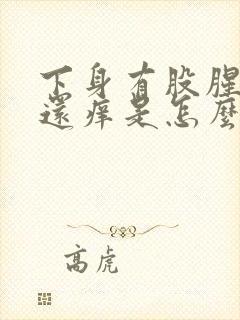 下身有股腥
還痒是怎麽
高虎